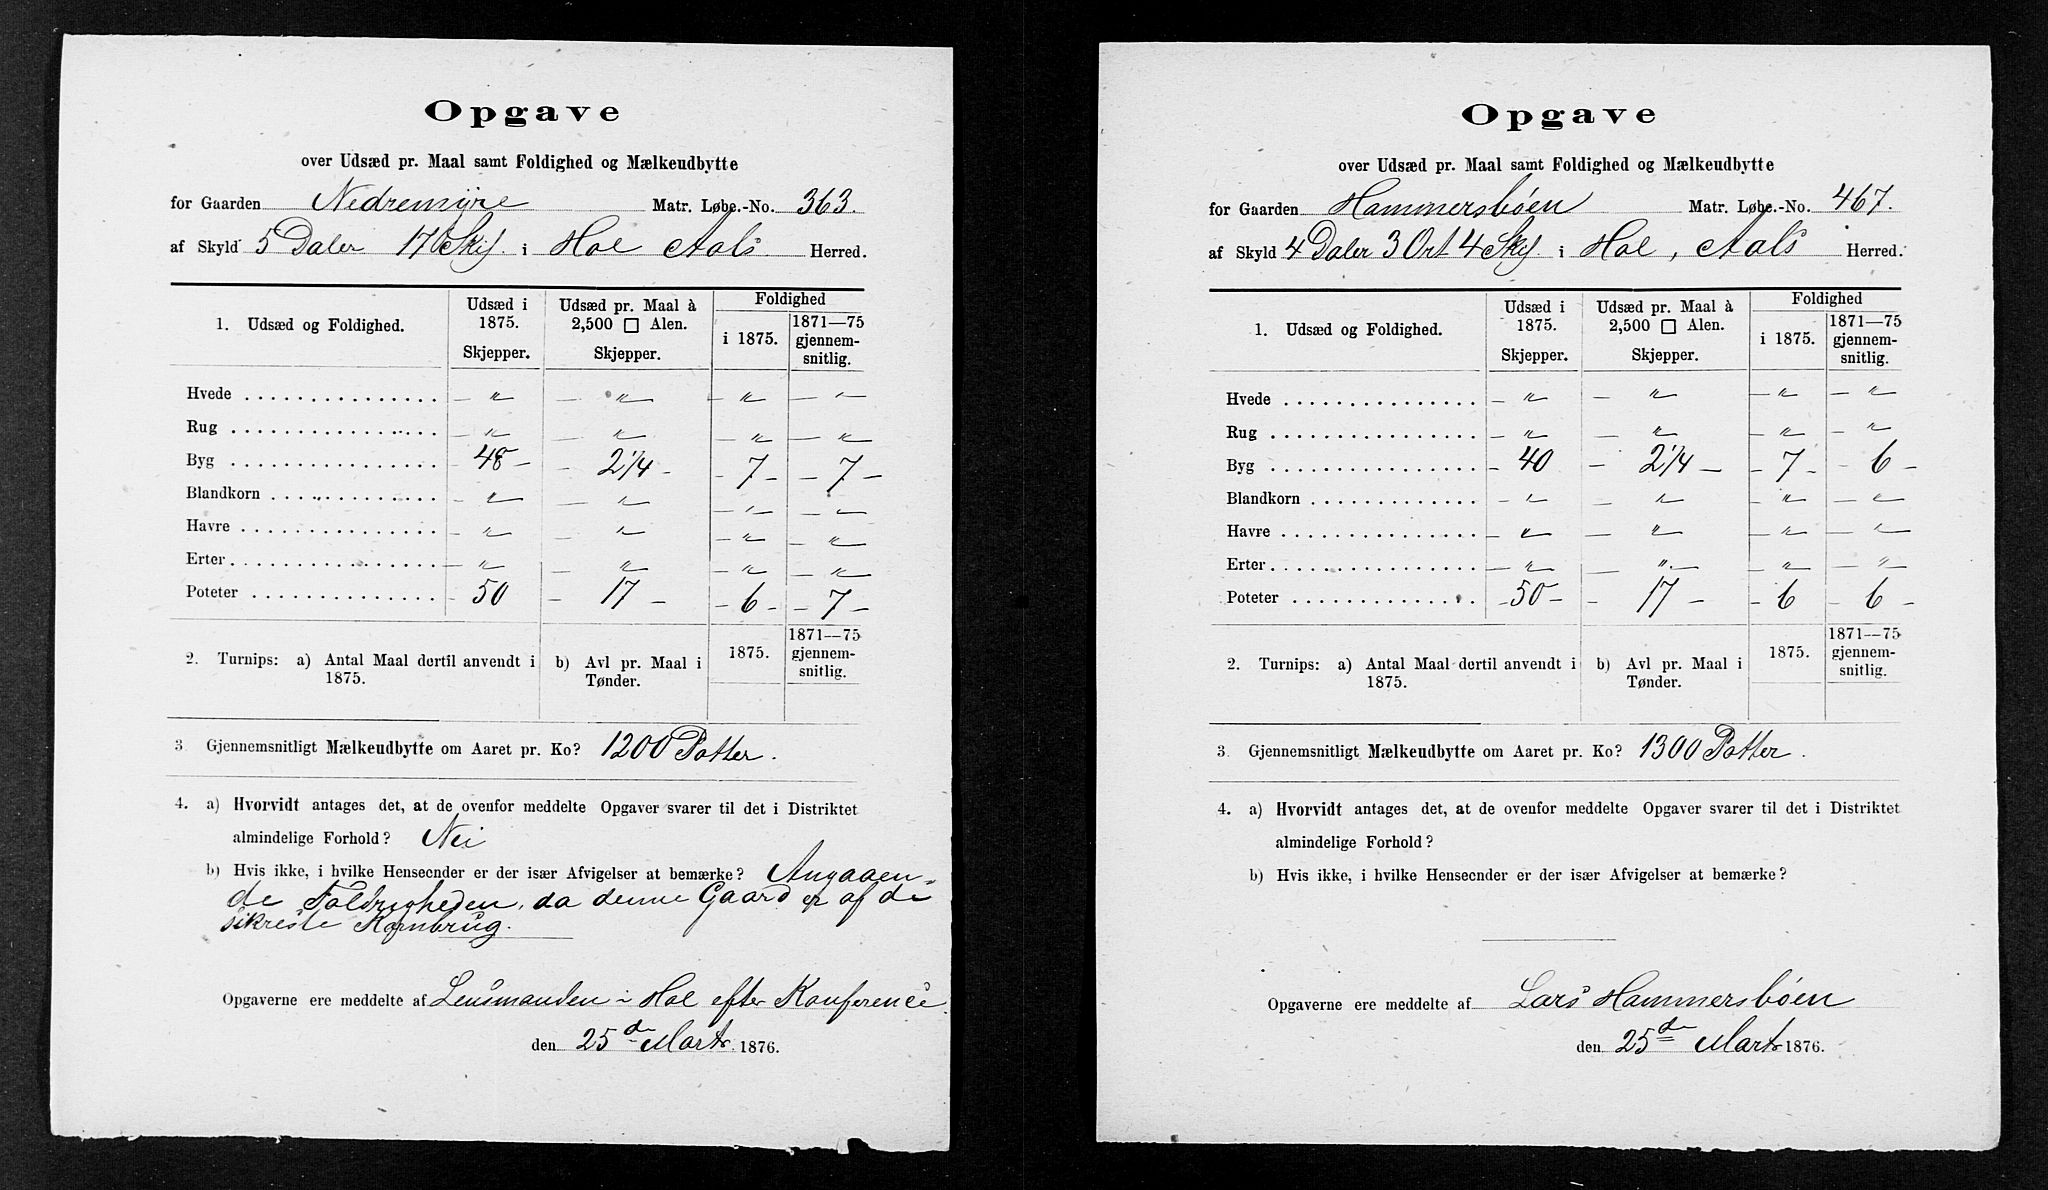 Opgave
over Udsæd pr. Maal samt Foldighed og Mælkeudbytte
for Gaarden Nedremyre Matr. Løbe.-No. 363.
af Skyld 5 Daler 17 Skj. i Hol Aals Herred.
1. Udsæd og Foldighed.
Udsæd i 1875. Skjepper.
Udsæd pr. Maal à 2,500 □ Alen. Skjepper.
Foldighed
i 1875.
1871—75 gjennemsnitlig.
Hvede — " — — " — — " — — " —
Rug — " — — " — — " — — " —
Byg - 48 - - 2 1/4 - - 7 - - 7 -
Blandkorn — " — — " — — " — — " —
Havre — " — — " — — " — — " —
Erter — " — — " — — " — — " —
Poteter - 50 - 17 - - 6 - - 7 -
2. Turnips: a) Antal Maal dertil anvendt i 1875.
b) Avl pr. Maal i Tønder.
1875.
1871—75 gjennemsnitlig.
3 Gjennemsnitligt Mælkeudbytte om Aaret pr. Ko? 1200 Potter.
4. a) Hvorvidt antages det, at de ovenfor meddelte Opgaver svarer til det i Distriktet
almindelige Forhold? Nei
b) Hvis ikke, i hvilke Henseender er der især Afvigelser at bemærke? Angaaen-
de Foldigheden, da denne Gaard er af de
sikreste Kornbrug.
Opgaverne ere meddelte af Lensmanden i Hol efter Konference
den 25de Marts 1876.
Opgave
over Udsæd pr. Maal samt Foldighed og Mælkeudbytte
for Gaarden Hammersbøen Matr. Løbe.-No. 467.
af Skyld 4 Daler 3 Ort 4 Skj. i Hol, Aals Herred.
1. Udsæd og Foldighed.
Udsæd i 1875. Skjepper.
Udsæd pr. Maal à 2,500 □ Alen. Skjepper.
Foldighed
i 1875.
1871—75 gjennemsnitlig.
Hvede — " — — " — — " — — " —
Rug — " — — " — — " — — " —
Byg - 40 - 2 1/4 - - 7 - - 6 -
Blandkorn — " — — " — — " — — " —
Havre — " — — " — — " — — " —
Erter — " — — " — — " — — " —
Poteter - 50 - - 17 - - 6 - 6 -
2. Turnips: a) Antal Maal dertil anvendt i 1875.
b) Avl pr. Maal i Tønder.
1875.
1871—75 gjennemsnitlig.
3. Gjennemsnitligt Mælkeudbytte om Aaret pr. Ko? 1300 Potter.
4. a) Hvorvidt antages det, at de ovenfor meddelte Opgaver svarer til det i Distriktet
almindelige Forhold?
b) Hvis ikke, i hvilke Henseender er der især Afvigelser at bemærke?
Opgaverne ere meddelte af Lars Hammersbøen
den 25de Marts 1876.